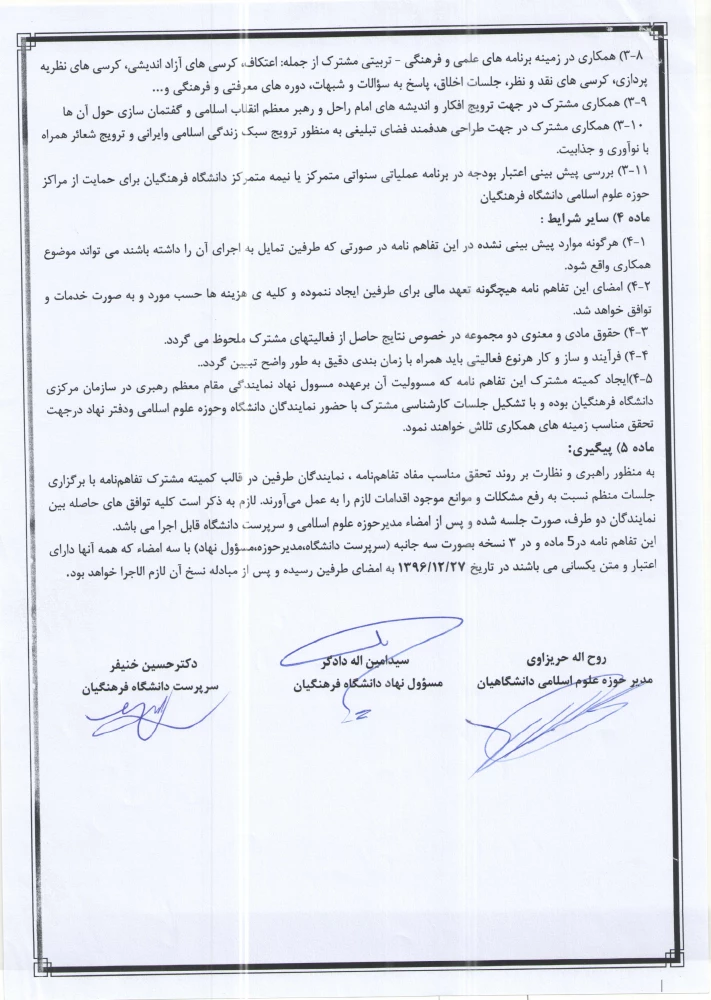 ۳-۸) همکاری در زمینه برنامه های علمی و فرهنگی - تربیتی مشترک از جمله: اعتکاف، کرسی های آزاد اندیشی، کرسی های نظریه
پردازی، کرسی های نقد و نظر، جلسات اخلاق، پاسخ به سؤالات و شبهات، دوره های معرفتی و فرهنگی و...
۳-۹) همکاری مشترک در جهت ترویج افکار و اندیشه های امام راحل و رهبر معظم انقلاب اسلامی و گفتمان سازی حول آن ها
۳-۱۰) همکاری مشترک در جهت طراحی هدفمند فضای تبلیغی به منظور ترویج سبک زندگی اسلامی وایرانی و ترویج شعائر همراه
با نوآوری و جذابیت.
۳-۱۱) بررسی پیش بینی اعتبار بودجه در برنامه عملیاتی سنواتی متمرکز یا نیمه متمرکز دانشگاه فرهنگیان برای حمایت از مراکز
حوزه علوم اسلامی دانشگاه فرهنگیان
ماده ۴) سایر شرایط :
۴-۱) هرگونه موارد پیش بینی نشده در این تفاهم نامه در صورتی که طرفین تمایل به اجرای آن را داشته باشند می تواند موضوع
همکاری واقع شود.
۴-۲) امضای این تفاهم نامه هیچگونه تعهد مالی برای طرفین ایجاد ننموده و کلیه ی هزینه ها حسب مورد و به صورت خدمات و
توافق خواهد شد.
۴-۳) حقوق مادی و معنوی دو مجموعه در خصوص نتایج حاصل از فعالیتهای مشترک ملحوظ می گردد.
۴-۴) فرآیند و ساز و کار هرنوع فعالیتی باید همراه با زمان بندی دقیق به طور واضح تبیین گردد..
۴-۵)ایجاد کمیته مشترک این تفاهم نامه که مسوولیت آن برعهده مسوول نهاد نمایندگی مقام معظم رهبری در سازمان مرکزی
دانشگاه فرهنگیان بوده و با تشکیل جلسات کارشناسی مشترک با حضور نمایندگان دانشگاه وحوزه علوم اسلامی ودفتر نهاد درجهت
تحقق مناسب زمینه های همکاری تلاش خواهند نمود.
ماده ۵) پیگیری:
به منظور راهبری و نظارت بر روند تحقق مناسب مفاد تفاهم‌نامه ، نمایندگان طرفین در قالب کمیته مشترک تفاهم‌نامه با برگزاری
جلسات منظم نسبت به رفع مشکلات و موانع موجود اقدامات لازم را به عمل می‌آورند. لازم به ذکر است کلیه توافق های حاصله بین
نمایندگان دو طرف، صورت جلسه شده و پس از امضاء مدیرحوزه علوم اسلامی و سرپرست دانشگاه قابل اجرا می باشد.
این تفاهم نامه در5 ماده و در ۳ نسخه بصورت سه جانبه (سرپرست دانشگاه،مدیرحوزه،مسؤول نهاد) با سه امضاء که همه آنها دارای
اعتبار و متن یکسانی می باشند در تاریخ ۱۳۹۶/۱۲/۲۷ به امضای طرفین رسیده و پس از مبادله نسخ آن لازم الاجرا خواهد بود.
روح اله حریزاوی
مدیر حوزه علوم اسلامی دانشگاهیان
سیدامین اله دادگر
مسؤول نهاد دانشگاه فرهنگیان
دکترحسین خنیفر
سرپرست دانشگاه فرهنگیان